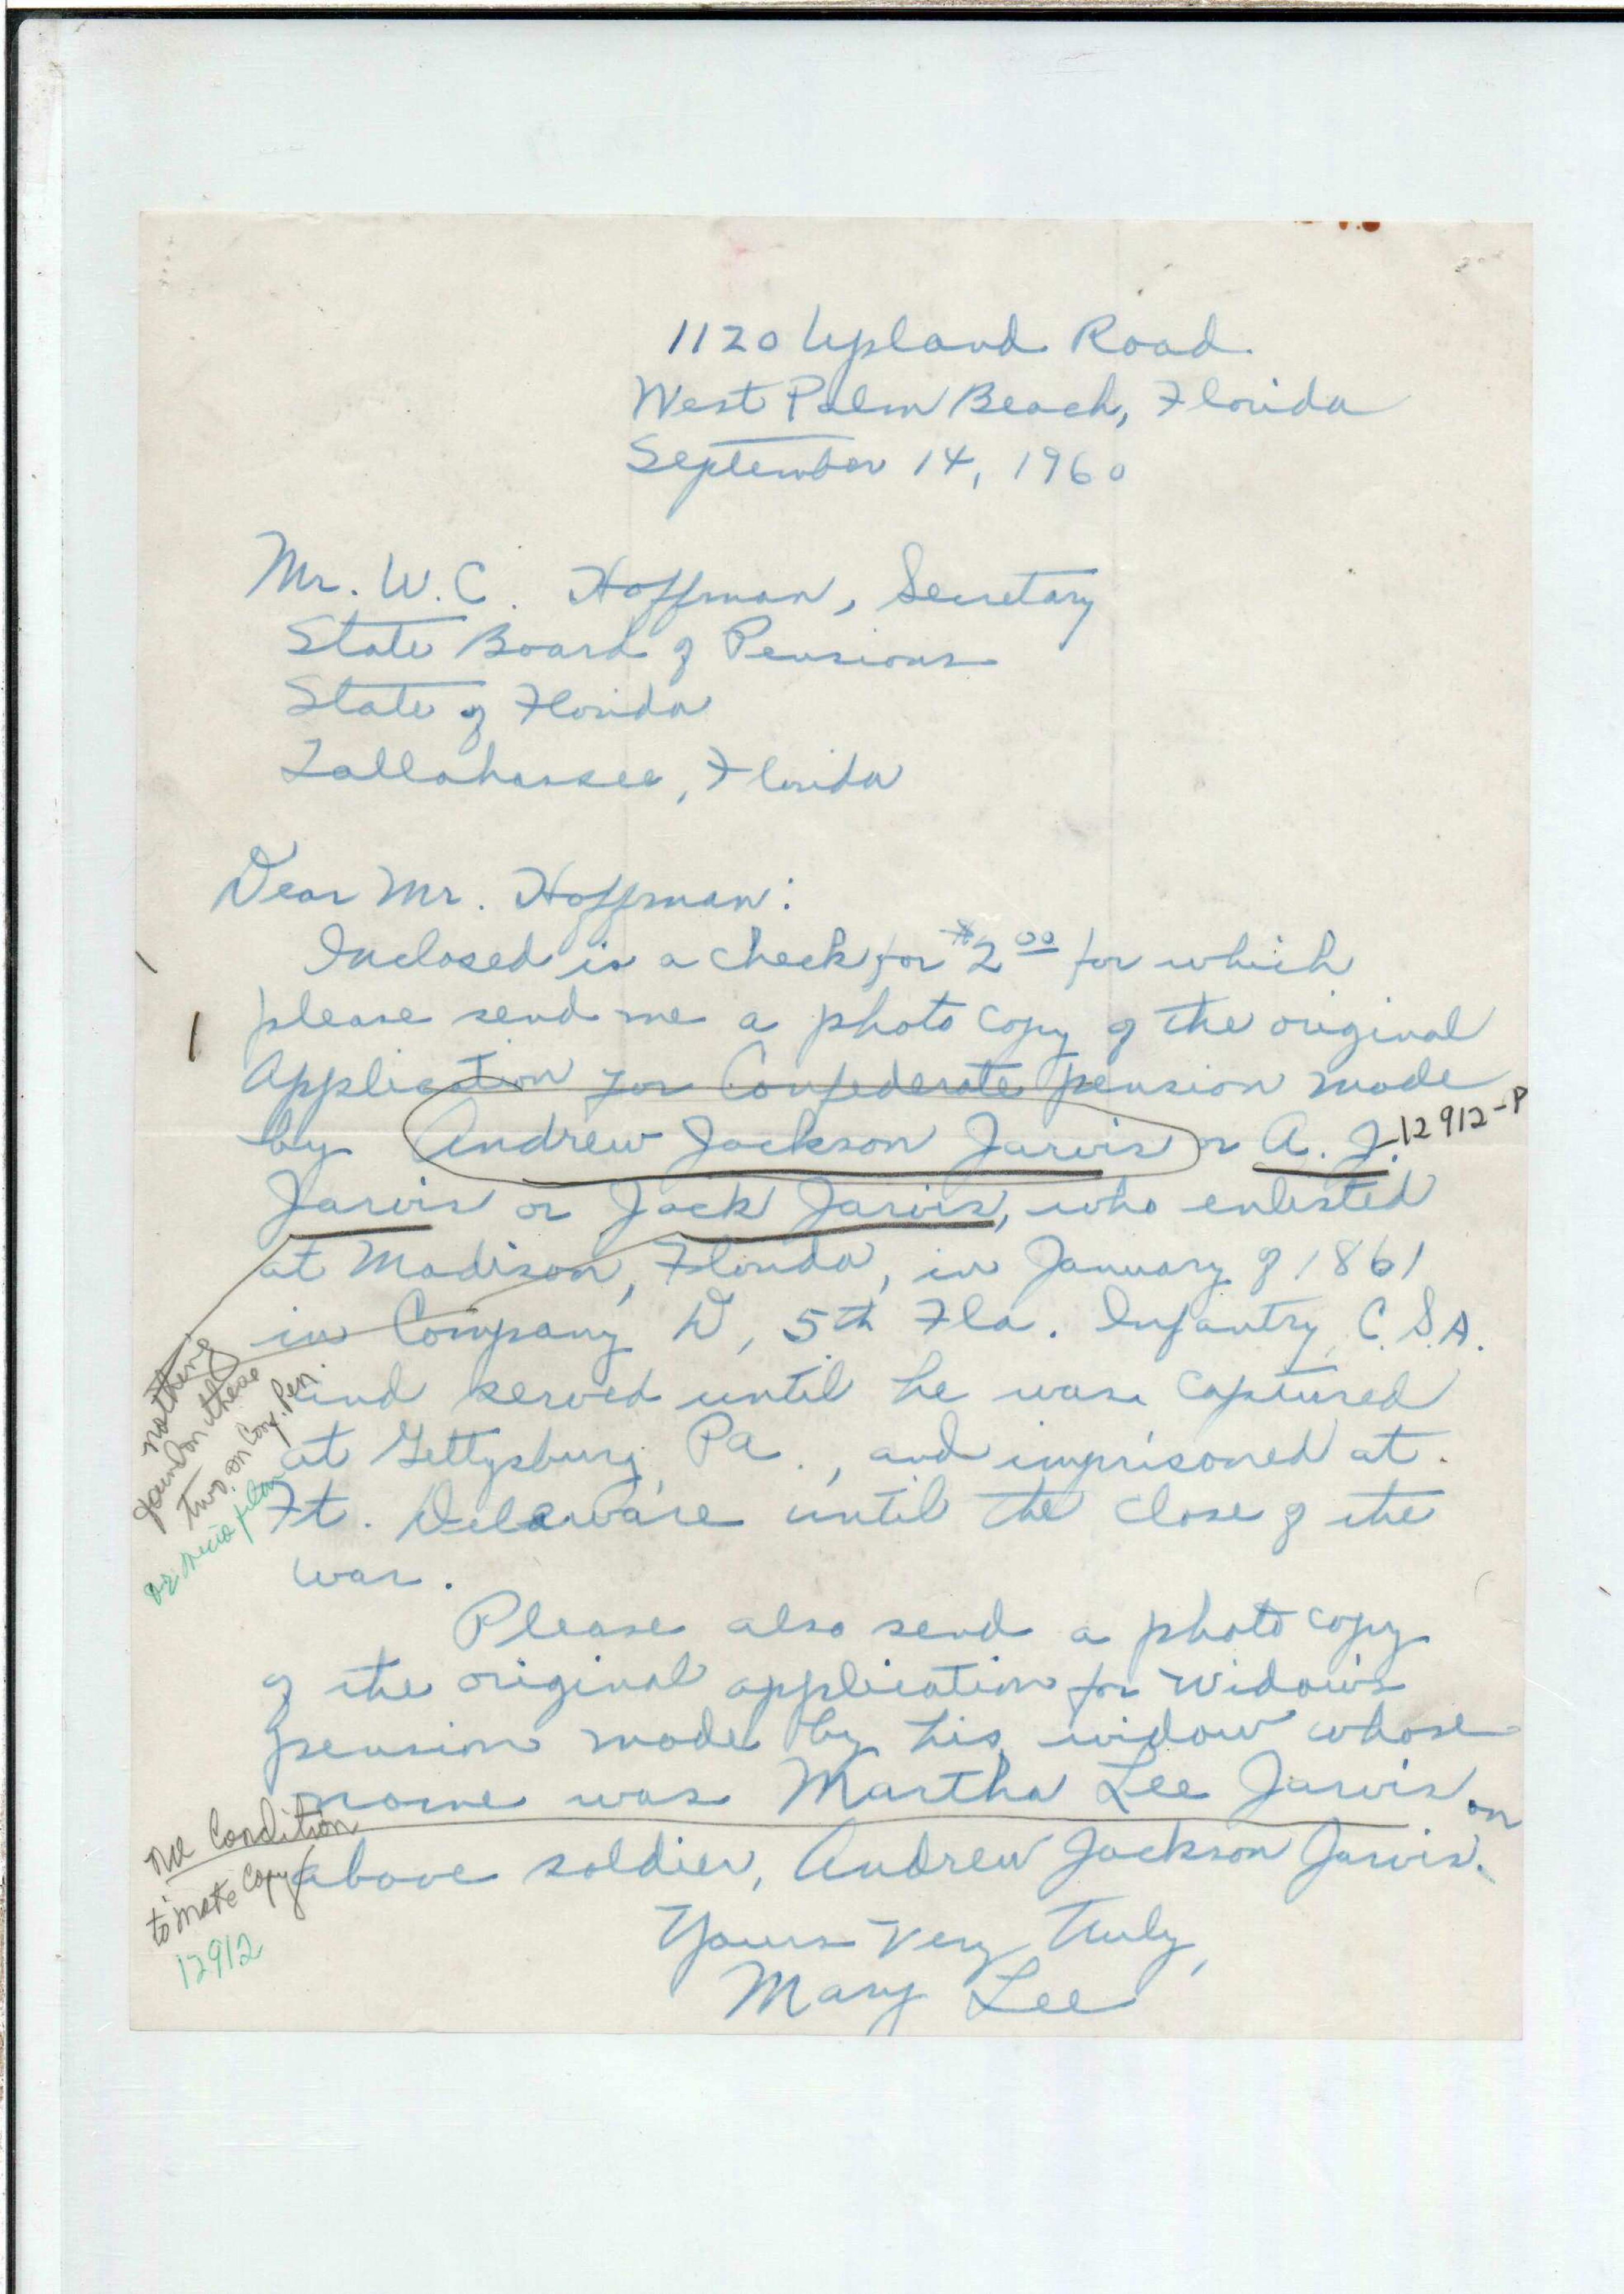 1120 Upland Road
West Palm Beach, Florida
September 14, 1960
Mr. W. C. Hoffman, Secretary
State Board of Pensions
State of Florida
Tallahassee, Florida
Dear Mr. Hoffman:
Inclosed is a check for $2 00 for which
please send me a photo copy of the original
Application for Confederate pension made
by Andrew Jackson Jarvis or A. J. 12912-P
Jarvis or Jack Jarvis, who enlisted
at Madison, Florida, in January of 1861
in Company D, 5th Fla. Infantry, C.S.A.
and served until he was captured
at Gettysburg, Pa., and imprisoned at
Ft. Delaware until the close of the
war.
nothing
found on these
two. on Conf. Pen.
or micro film
Please also send a photo copy
of the original application for widow's
pension made by his widow whose
name was Martha Lee Jarvis on
above soldier, Andrew Jackson Jarvis.
Yours Very Truly,
Mary Lee
Condition
to make copy
12912